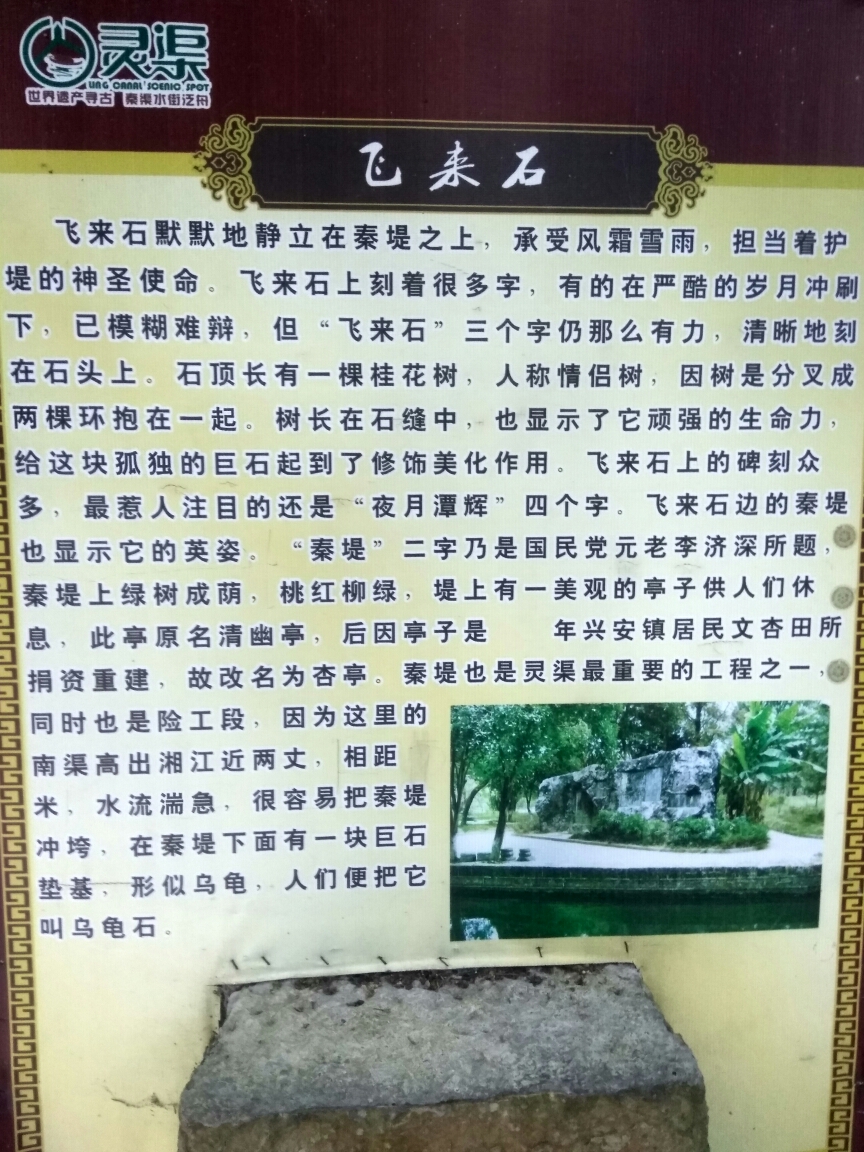 灵渠
LING CANAL SCENIC SPOT
世界遗产寻古 秦渠水街泛舟
飞来石
飞来石默默地静立在秦堤之上，承受风霜雪雨，担当着护
堤的神圣使命。飞来石上刻着很多字，有的在严酷的岁月冲刷
下，已模糊难辩，但“飞来石”三个字仍那么有力，清晰地刻
在石头上。石顶长有一棵桂花树，人称情侣树，因树是分叉成
两棵环抱在一起。树长在石缝中，也显示了它顽强的生命力，
给这块孤独的巨石起到了修饰美化作用。飞来石上的碑刻众
多，最惹人注目的还是“夜月潭辉”四个字。飞来石边的秦堤
也显示它的英姿。“秦堤”二字乃是国民党元老李济深所题，
秦堤上绿树成荫，桃红柳绿，堤上有一美观的亭子供人们休
息，此亭原名清幽亭，后因亭子是 年兴安镇居民文杏田所
捐资重建，故改名为杏亭。秦堤也是灵渠最重要的工程之一，
同时也是险工段，因为这里的
南渠高出湘江近两丈，相距
米，水流湍急，很容易把秦堤
冲垮，在秦堤下面有一块巨石
垫基，形似乌龟，人们便把它
叫乌龟石。